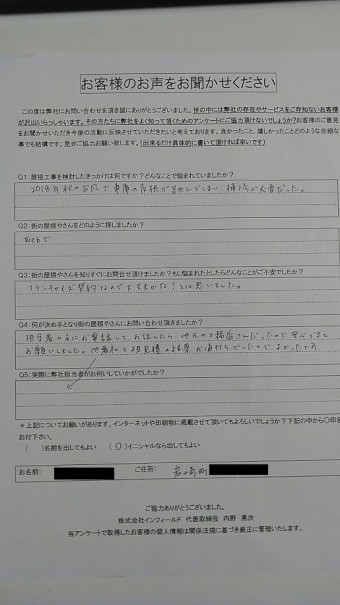 お客様のお声をお聞かせください
この度は弊社にお問い合わせを頂き誠にありがとうございました。世の中には弊社の存在やサービスをご存知ないお客様
が沢山いらっしゃいます。その方たちに弊社をよく知って頂くためのアンケートにご協力頂けないでしょうか?お客様のご意見
をお聞かせいただき今後の活動に反映させていただきたいと考えております。良かったこと、嬉しかったことどのような些細な
事でも結構です。是非ご協力お願い致します。(出来るだけ具体的に書いて頂ければ幸いです)
Q1:屋根工事を検討したきっかけは何ですか?どんなことで悩まれていましたか?
2018年秋の台風で車庫の屋根が めくれてしまい、補修が必要だった。
Q2:街の屋根やさんをどのように探しましたか?
Webで
Q3:街の屋根やさんを知りすぐにお問合せ頂けますか?もし悩まれたとしたらどんなことがご不安でしたか?
フランチャイズ契約なので大丈夫かな!とは思いました。
Q4:何が決め手となり街の屋根やさんにお問い合わせ頂きましたか?
担当者の方にお電話して、お話したら、地元の工務店さんだったので安心できて
お願いしました。他者にも相見積の結果、お値打ちでしたのでよかったです。
Q5:実際に弊社担当者がお伺いしていかがでしたか?
*上記についてお願いがあります。インターネットや印刷物に掲載させて頂いてもよろしいでしょうか?下記の中から〇印を
お付下さい。
( )名前を出してもよい (〇)イニシャルなら出してもよい
お名前: ご住所:
ご協力ありがとうございました。
株式会社インフィールド 代表取締役 内野 勇次
当アンケートで取得したお客様の個人情報は関係法規に基づき厳正に管理いたします。